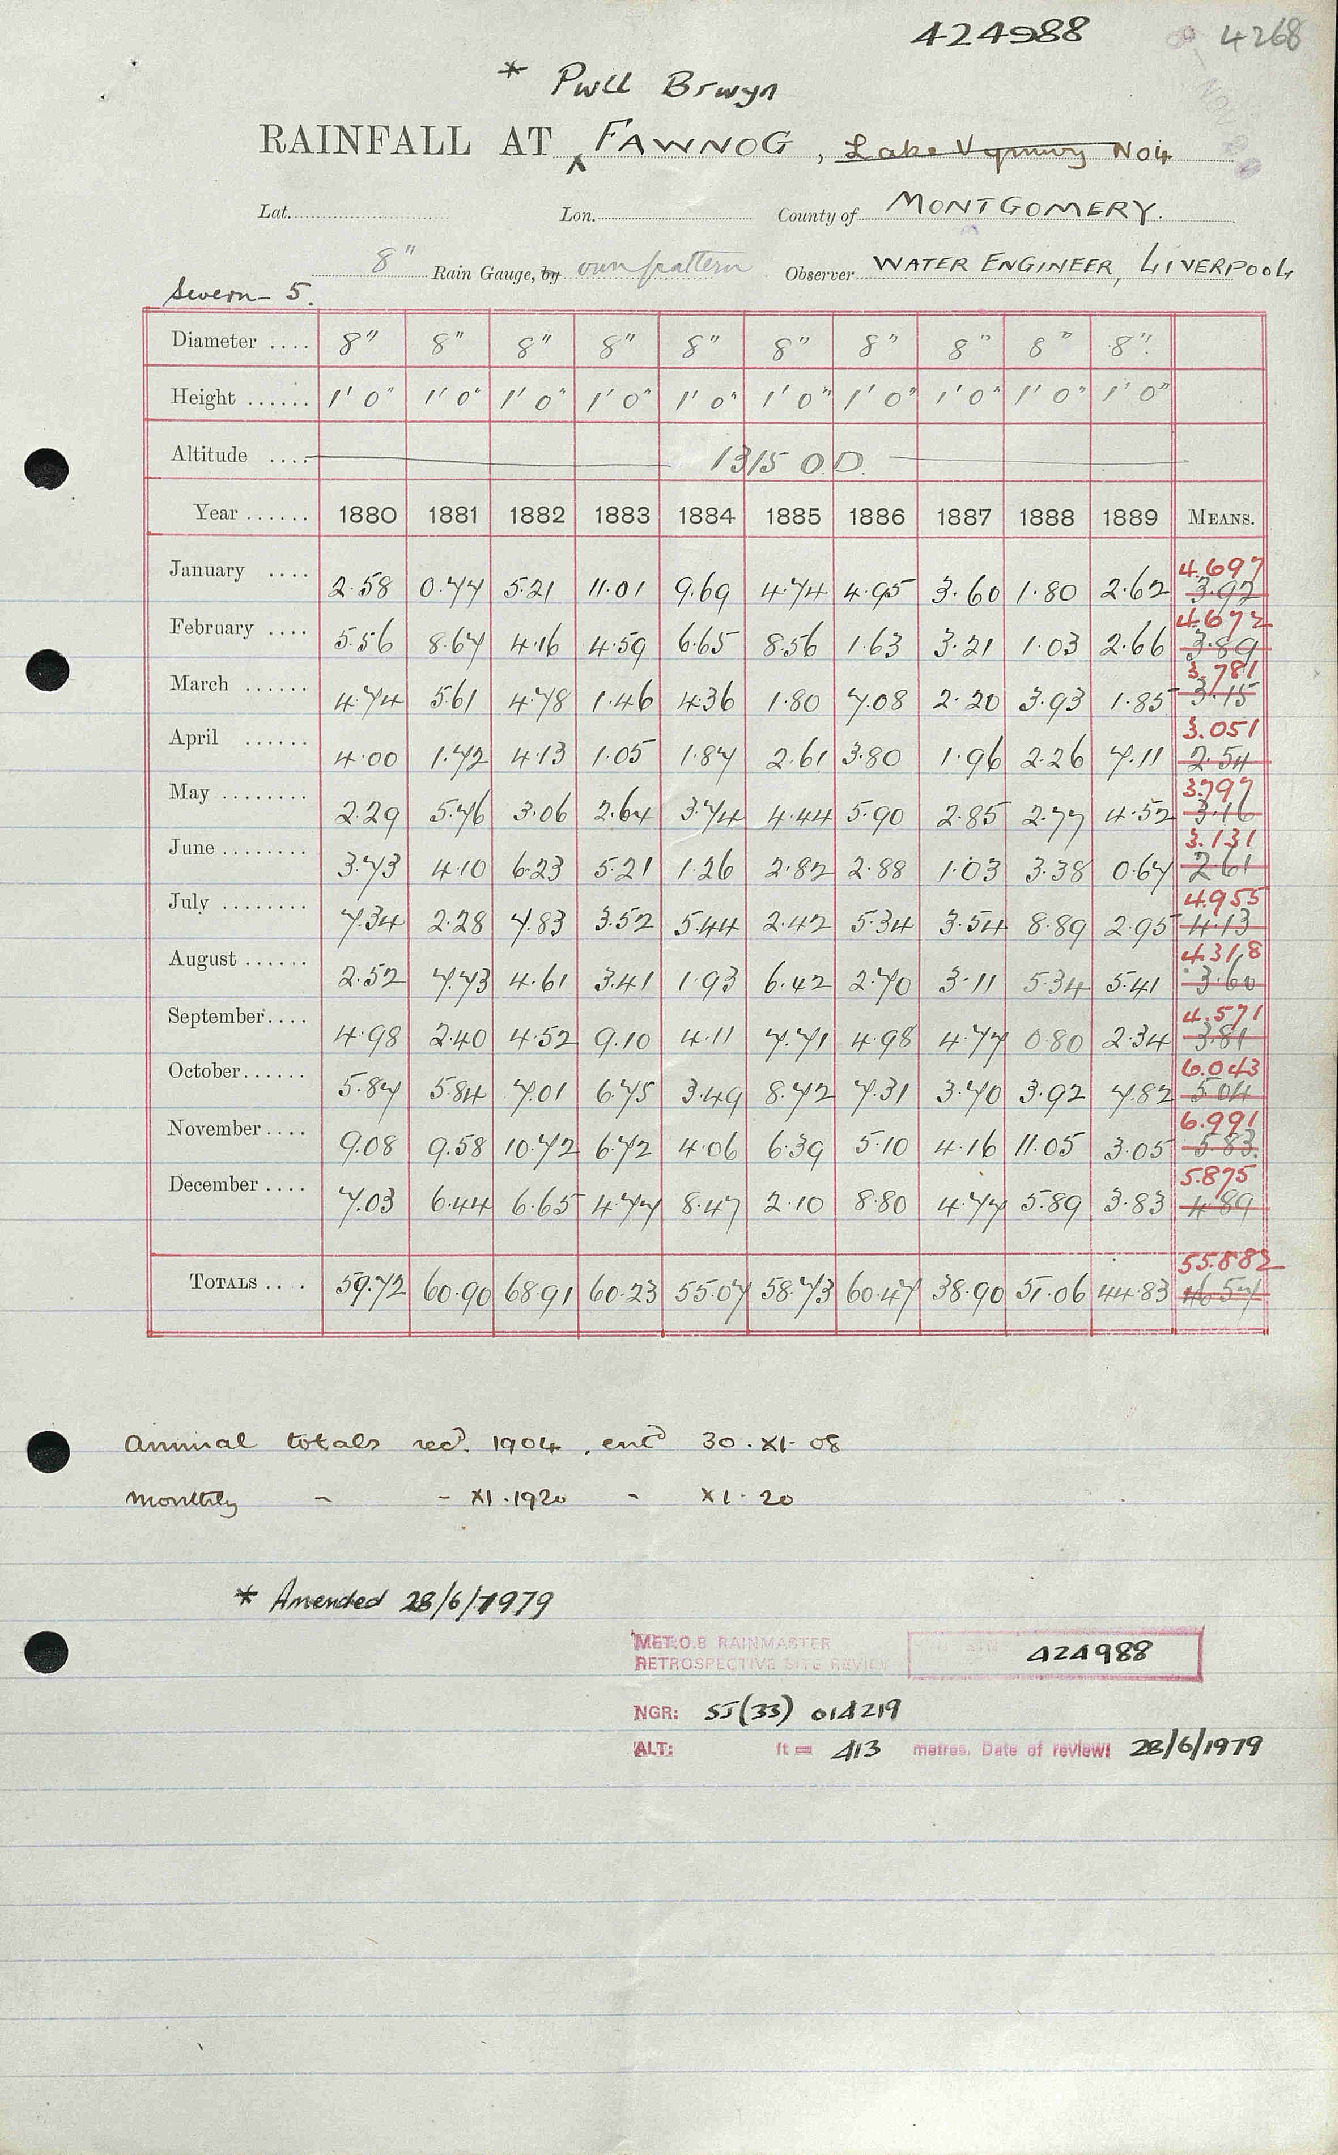 424988 4268
* Pwll Brwyn
RAINFALL AT FAWNOG, Lake Vyrnwy No4
Lat. Lon. County of MONTGOMERY.
8" Rain Gauge, by own pattern Observer WATER ENGINEER, LIVERPOOL
Severn - 5.
Diameter .... 8" 8" 8" 8" 8" 8" 8" 8" 8" 8".
Height ...... 1' 0" 1' 0" 1' 0" 1' 0" 1' 0" 1' 0" 1' 0" 1' 0" 1' 0" 1' 0"
Altitude .... 1315 O.D.
Year ...... 1880 1881 1882 1883 1884 1885 1886 1887 1888 1889 MEANS.
4.697
January .... 2.58 0.77 5.21 11.01 9.69 4.74 4.95 3.60 1.80 2.62 3.92
4.672
February .... 5.56 8.67 4.16 4.59 6.65 8.56 1.63 3.21 1.03 2.66 3.89
3.781
March ...... 4.74 5.61 4.78 1.46 4.36 1.80 7.08 2.20 3.93 1.85 3.15
3.051
April ...... 4.00 1.72 4.13 1.05 1.87 2.61 3.80 1.96 2.26 7.11 2.54
3.797
May ........ 2.29 5.76 3.06 2.64 3.74 4.44 5.90 2.85 2.77 4.52 3.16
3.131
June ........ 3.73 4.10 6.23 5.21 1.26 2.82 2.88 1.03 3.38 0.67 2.61
4.955
July ........ 7.34 2.28 7.83 3.52 5.44 2.42 5.34 3.54 8.89 2.95 4.13
4.318
August ...... 2.52 7.73 4.61 3.41 1.93 6.42 2.70 3.11 5.34 5.41 3.60
4.571
September.... 4.98 2.40 4.52 9.10 4.11 7.71 4.98 4.77 0.80 2.34 3.81
6.043
October...... 5.87 5.84 7.01 6.75 3.49 8.72 7.31 3.70 3.92 7.82 5.04
6.991
November.... 9.08 9.58 10.72 6.72 4.06 6.39 5.10 4.16 11.05 3.05 5.83.
5.875
December .... 7.03 6.44 6.65 4.77 8.47 2.10 8.80 4.77 5.89 3.83 4.89
55.882
TOTALS .... 59.72 60.90 68.91 60.23 55.07 58.73 60.47 38.90 51.06 44.83 46.57
Annual totals recd. 1904, entd 30.XI.08
Monthly - - XI.1920 - XI.20
* Amended 28/6/1979
MET.O.8 RAINMASTER
RETROSPECTIVE SITE REVIEW 424988
NGR: SJ(33) 014219
ALT: ft = 413 metres. Date of review: 28/6/1979